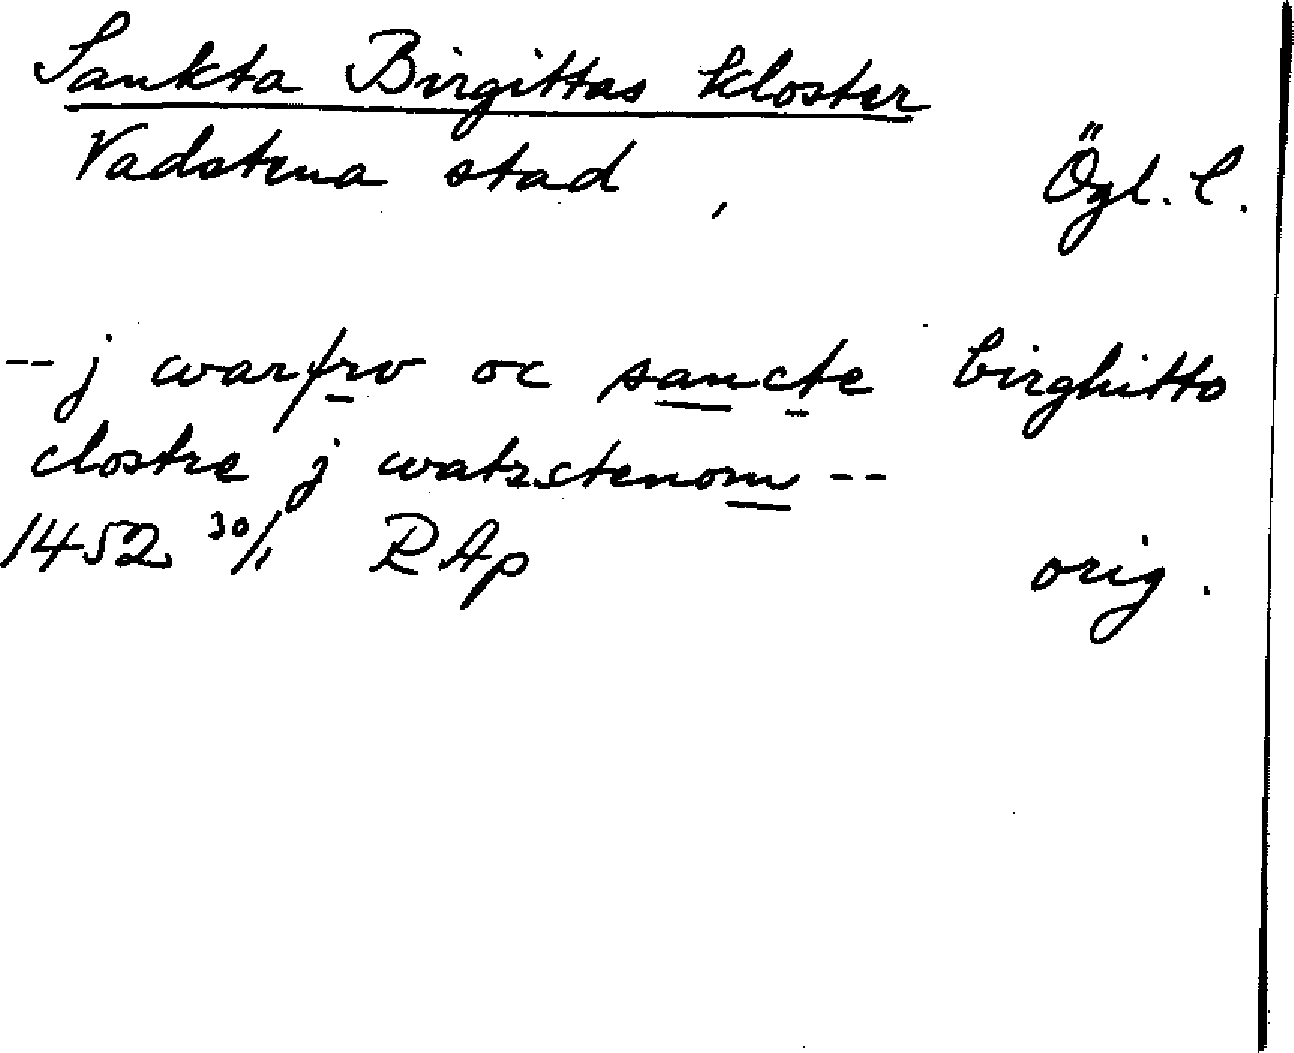 Sankta Birgittas kloster
Vadstena stad , Ögl. l.
-- j warfrv oc sancte birghitto
clostre j watzstenom --
1452 30/1 RAp orig.